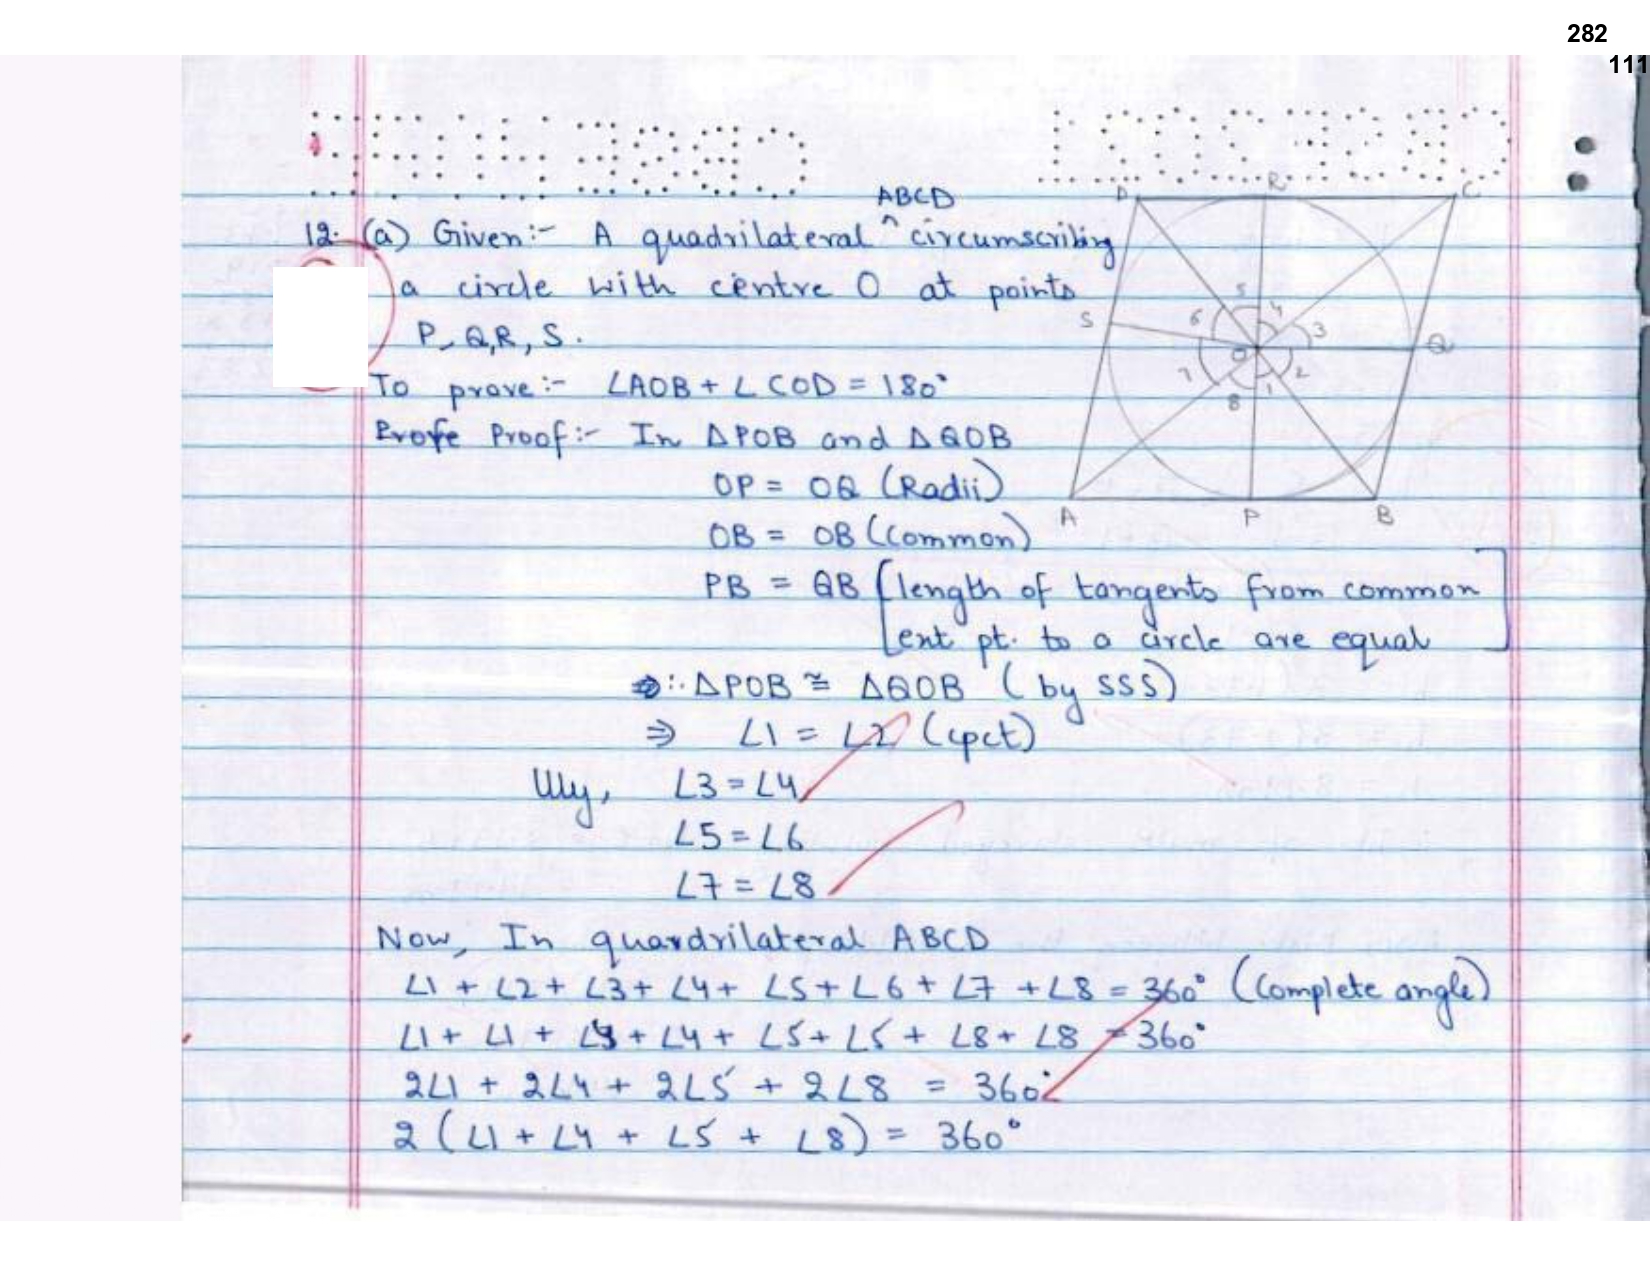 282
111
ABCD
12. (a) Given:- A quadrilateral ^ circumscribing
a circle with centre O at points
P, Q, R, S.
To prove:- ∠AOB + ∠COD = 180°
Prove Proof:- In ΔPOB and ΔQOB
OP = OQ (Radii)
OB = OB (Common)
PB = QB [length of tangents from common
ext pt. to a circle are equal]
⇒ ∴ ΔPOB ≅ ΔQOB (by SSS)
⇒ ∠1 = ∠2 (cpct)
Illy, ∠3 = ∠4
∠5 = ∠6
∠7 = ∠8
Now, In quardrilateral ABCD
∠1 + ∠2 + ∠3 + ∠4 + ∠5 + ∠6 + ∠7 + ∠8 = 360° (Complete angle)
∠1 + ∠1 + ∠4 + ∠4 + ∠5 + ∠5 + ∠8 + ∠8 = 360°
2∠1 + 2∠4 + 2∠5 + 2∠8 = 360°
2 (∠1 + ∠4 + ∠5 + ∠8) = 360°
D R C
S 6 5 4 3 Q
O
7 8 1 2
A P B